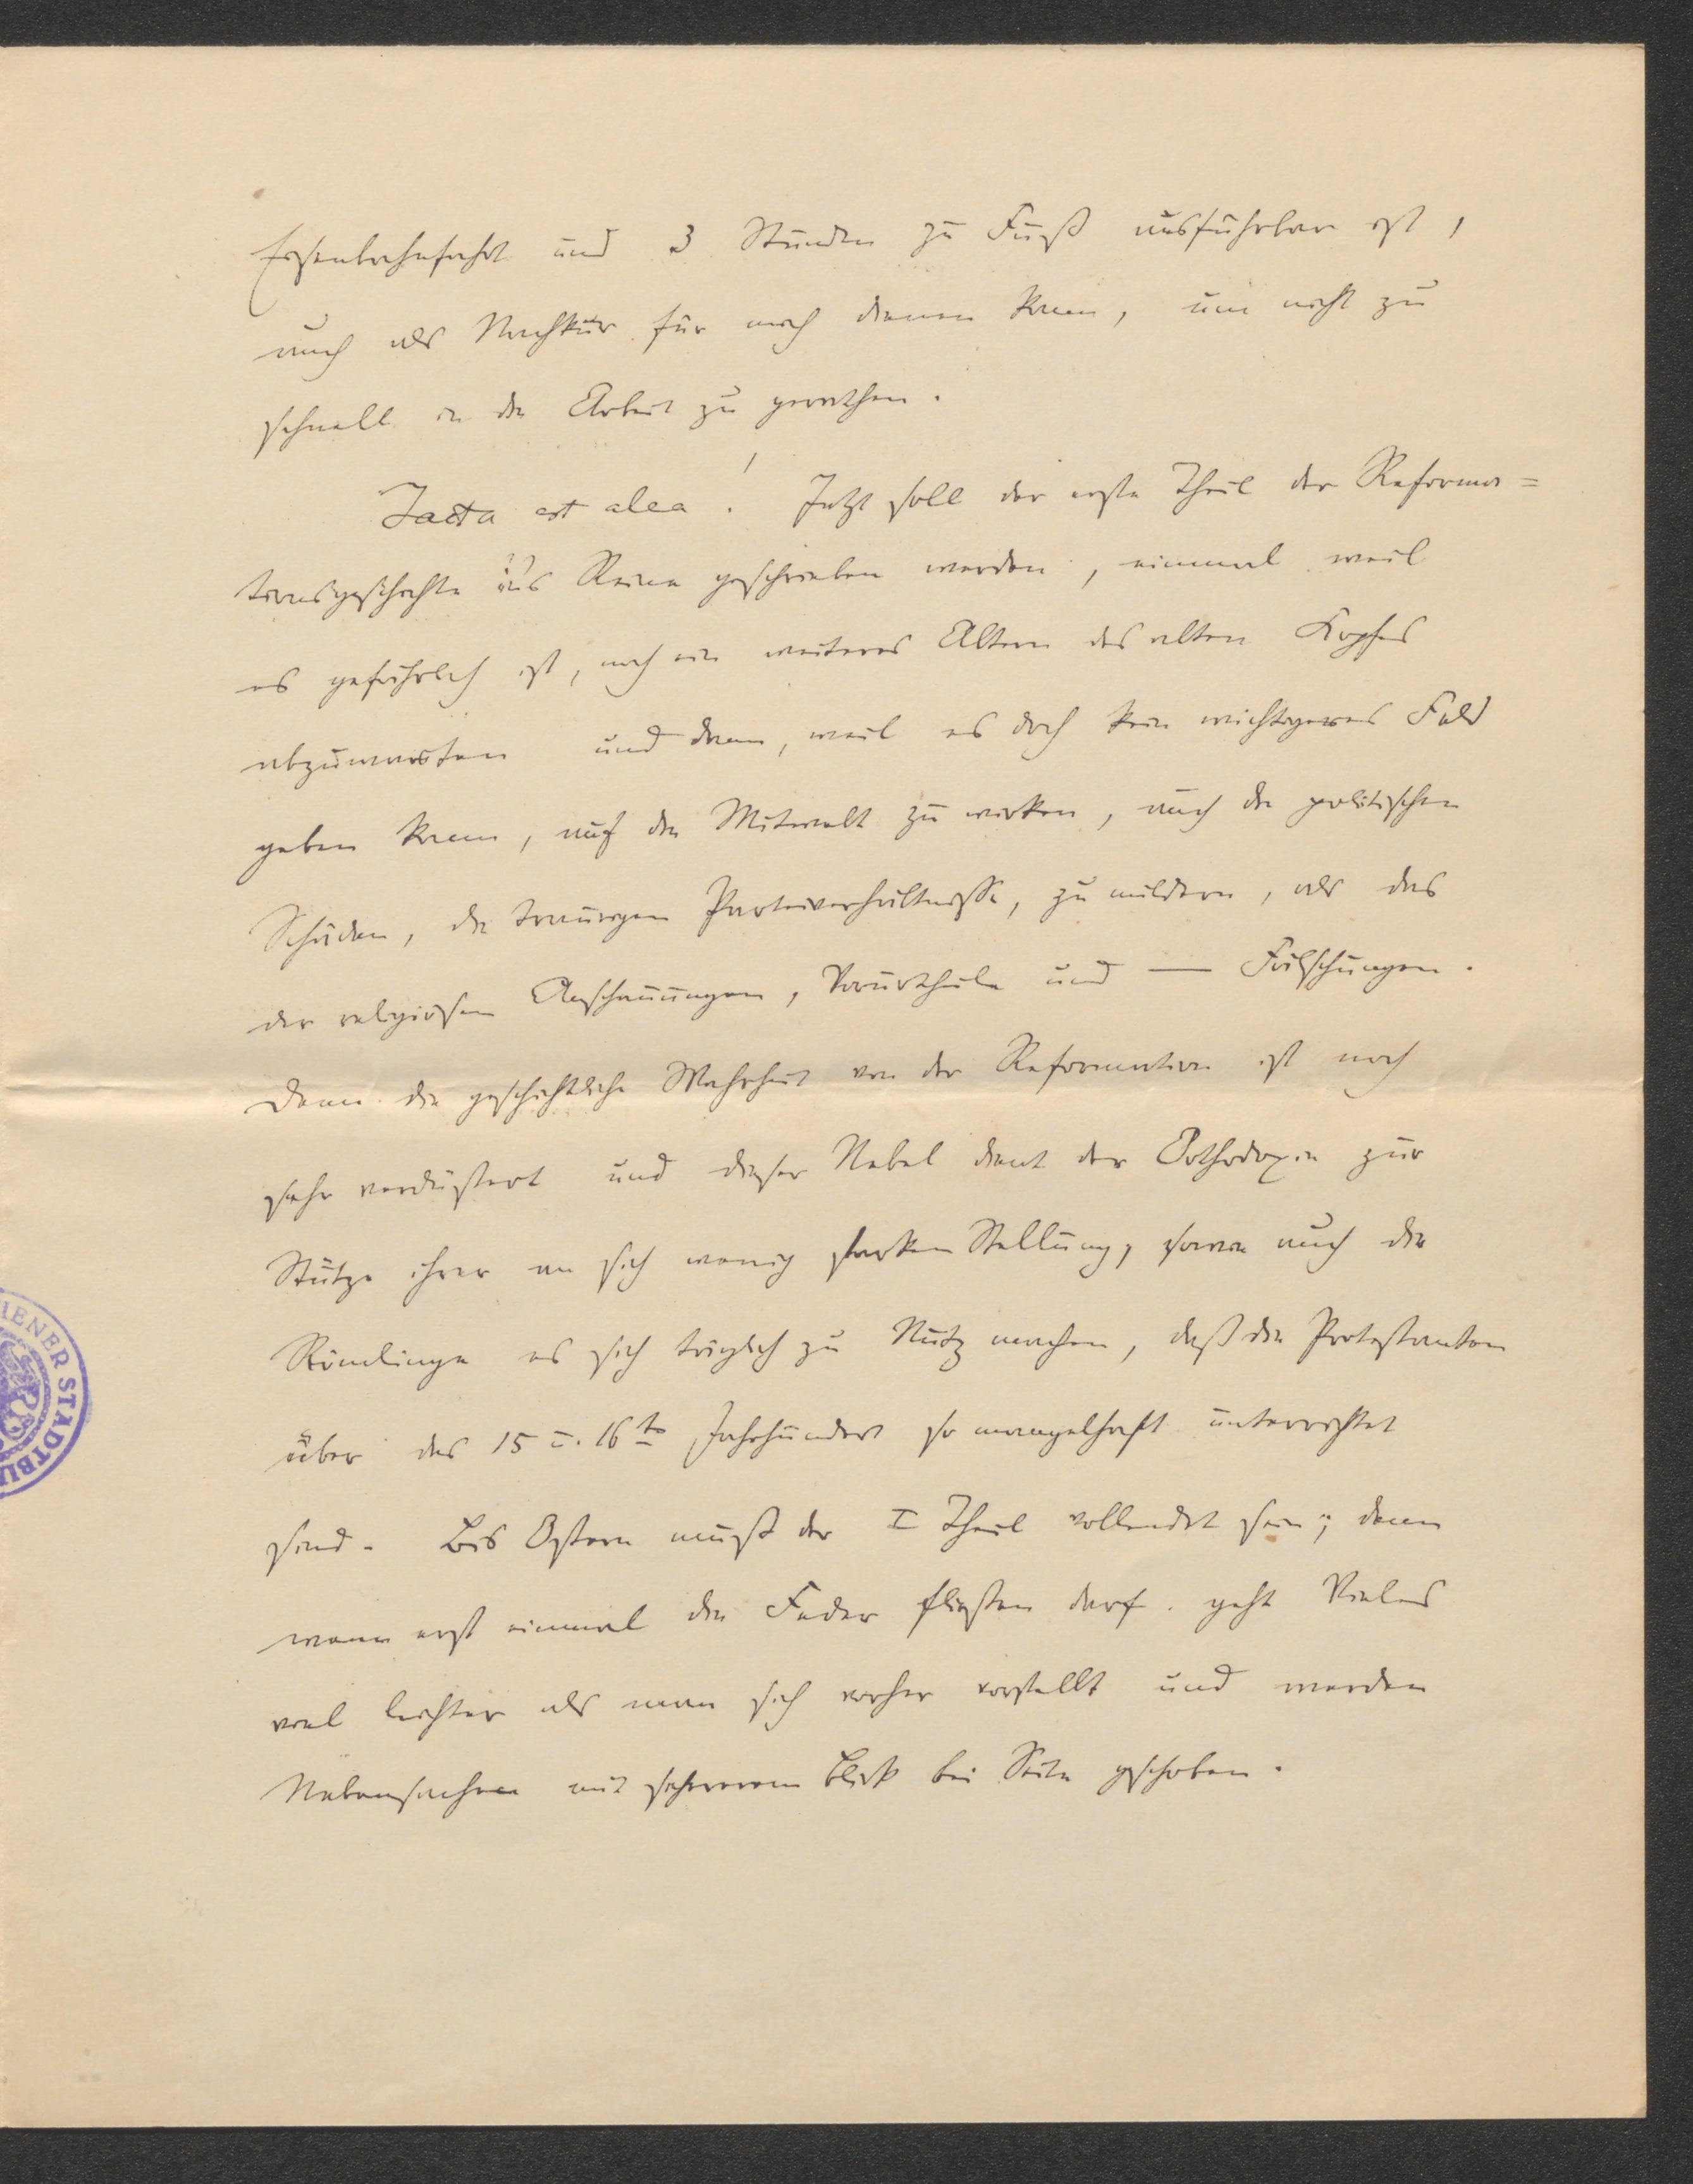 Eisenbahnfahrt und 3 Stunden zu Fuß ausführbar ist,
auch als Nachkur für mich dienen kann, um nicht zu
schnell in die Arbeit zu gerathen.
Jacta est alea! Jetzt soll der erste Theil der Reforma=
tionsgeschichte ins Reine geschrieben werden, einmal weil
es gefährlich ist, noch ein weiteres Altern des alten Kopfes
abzuwarten und dann, weil es doch kein wichtigeres Feld
geben kann, auf die Mitwelt zu wirken, auch die politischen
Schäden, die traurigen Parteiverhältnisse, zu mildern, als das
der religiösen Anschauungen, Vorurtheile und — Fälschungen.
Denn die geschichtliche Wahrheit von der Reformation ist noch
sehr verdüstert und dieser Nebel dient der Orthodoxie zur
Stütze ihrer an sich wenig starken Stellung, sowie auch die
Römlinge es sich täglich zu Nutz machen, daß die Protestanten
über das 15 u. 16te Jahrhundert so mangelhaft unterrichtet
sind. Bis Ostern muß der I Theil vollendet sein; denn
wenn erst einmal die Feder fließen darf. geht Vieles
viel leichter als man sich vorher vorstellt und werden
Nebensachen mit schärferem Blick bei Seite geschoben.
WIENER STADTBI